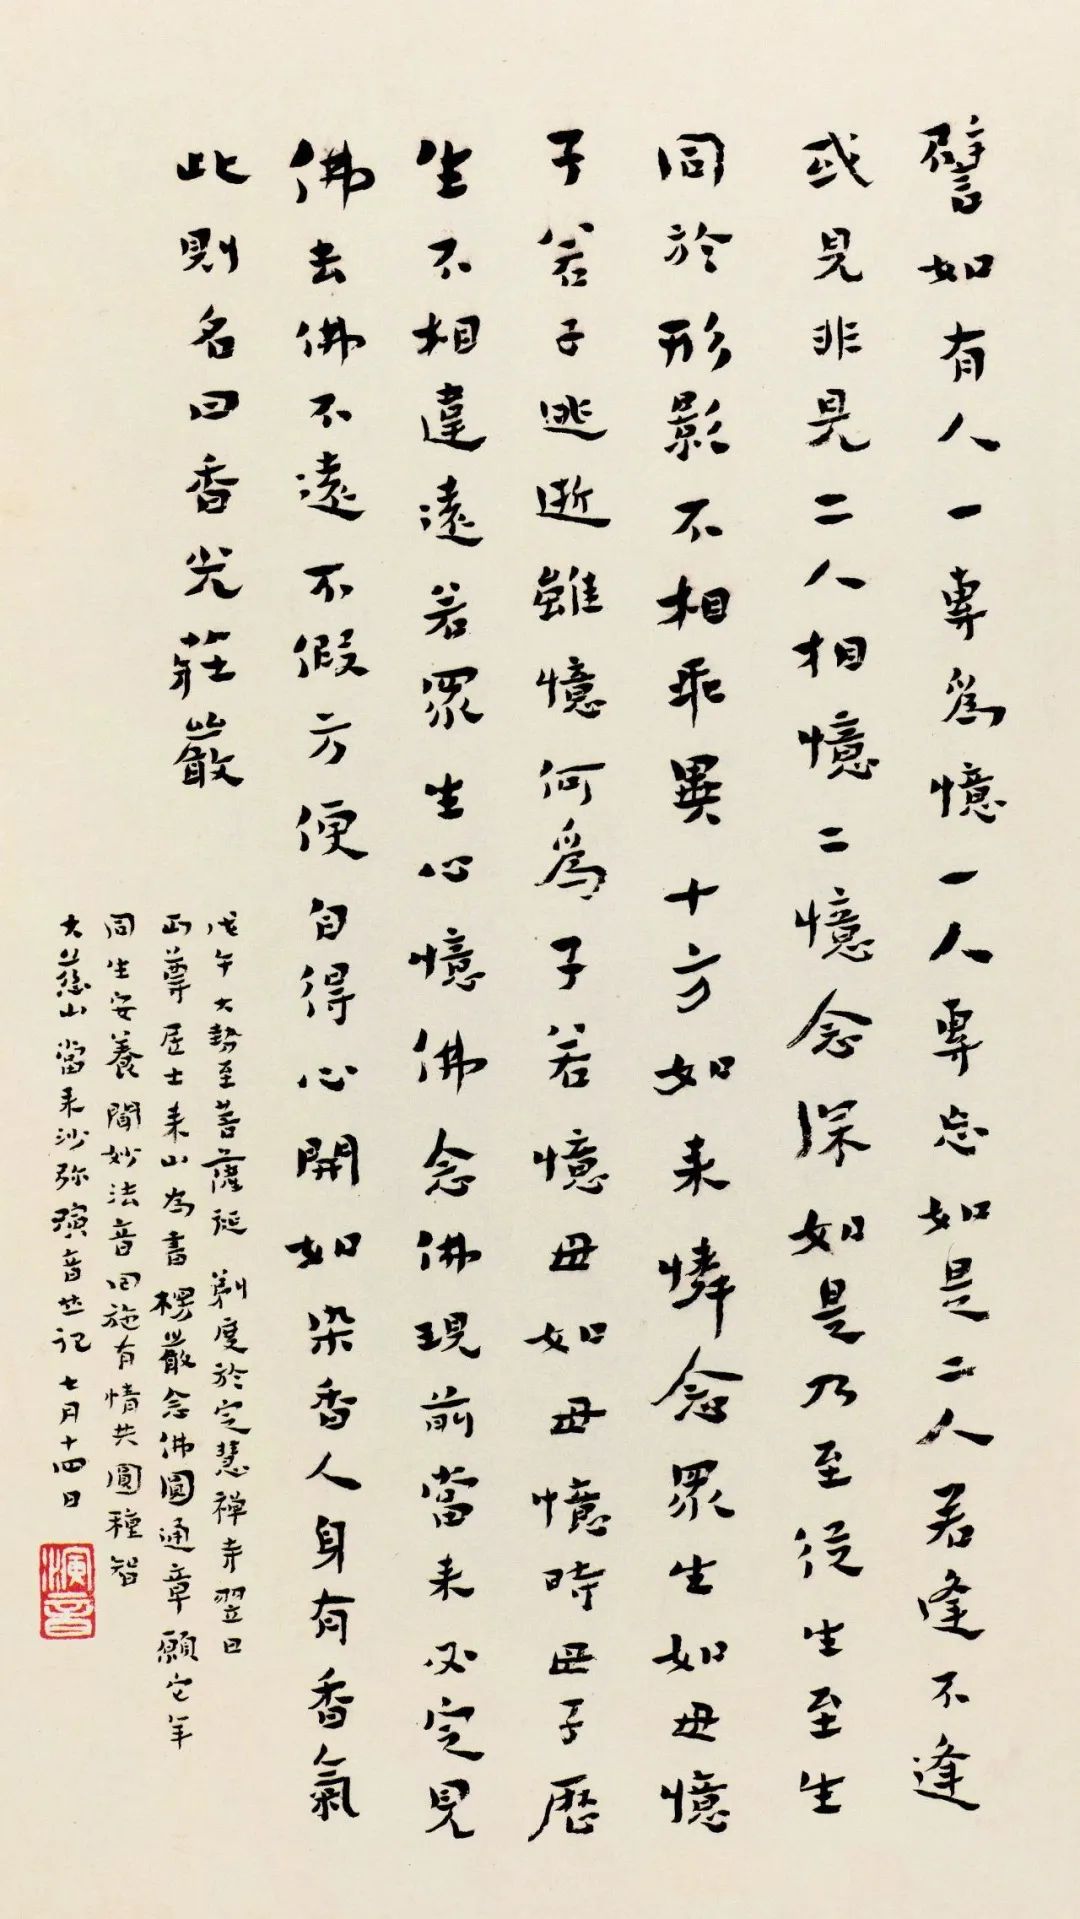 譬如有人一專爲憶一人專忘如是二人若逢不逢
或見非見二人相憶二憶念深如是乃至從生至生
同於形影不相乖異十方如来憐念眾生如母憶
子若子逃逝雖憶何爲子若憶母如母憶時母子歷
生不相違遠若眾生心憶佛念佛現前當来必定見
佛去佛不遠不假方便自得心開如染香人身有香氣
此則名曰香光莊嚴
戊午大勢至菩薩誕剃度於定慧禪寺翌日
丏尊居士来山為書楞嚴念佛圓通章願它年
同生安養聞妙法音回施有情共圓種智
大慈山當来沙弥演音並記七月十四日
演音